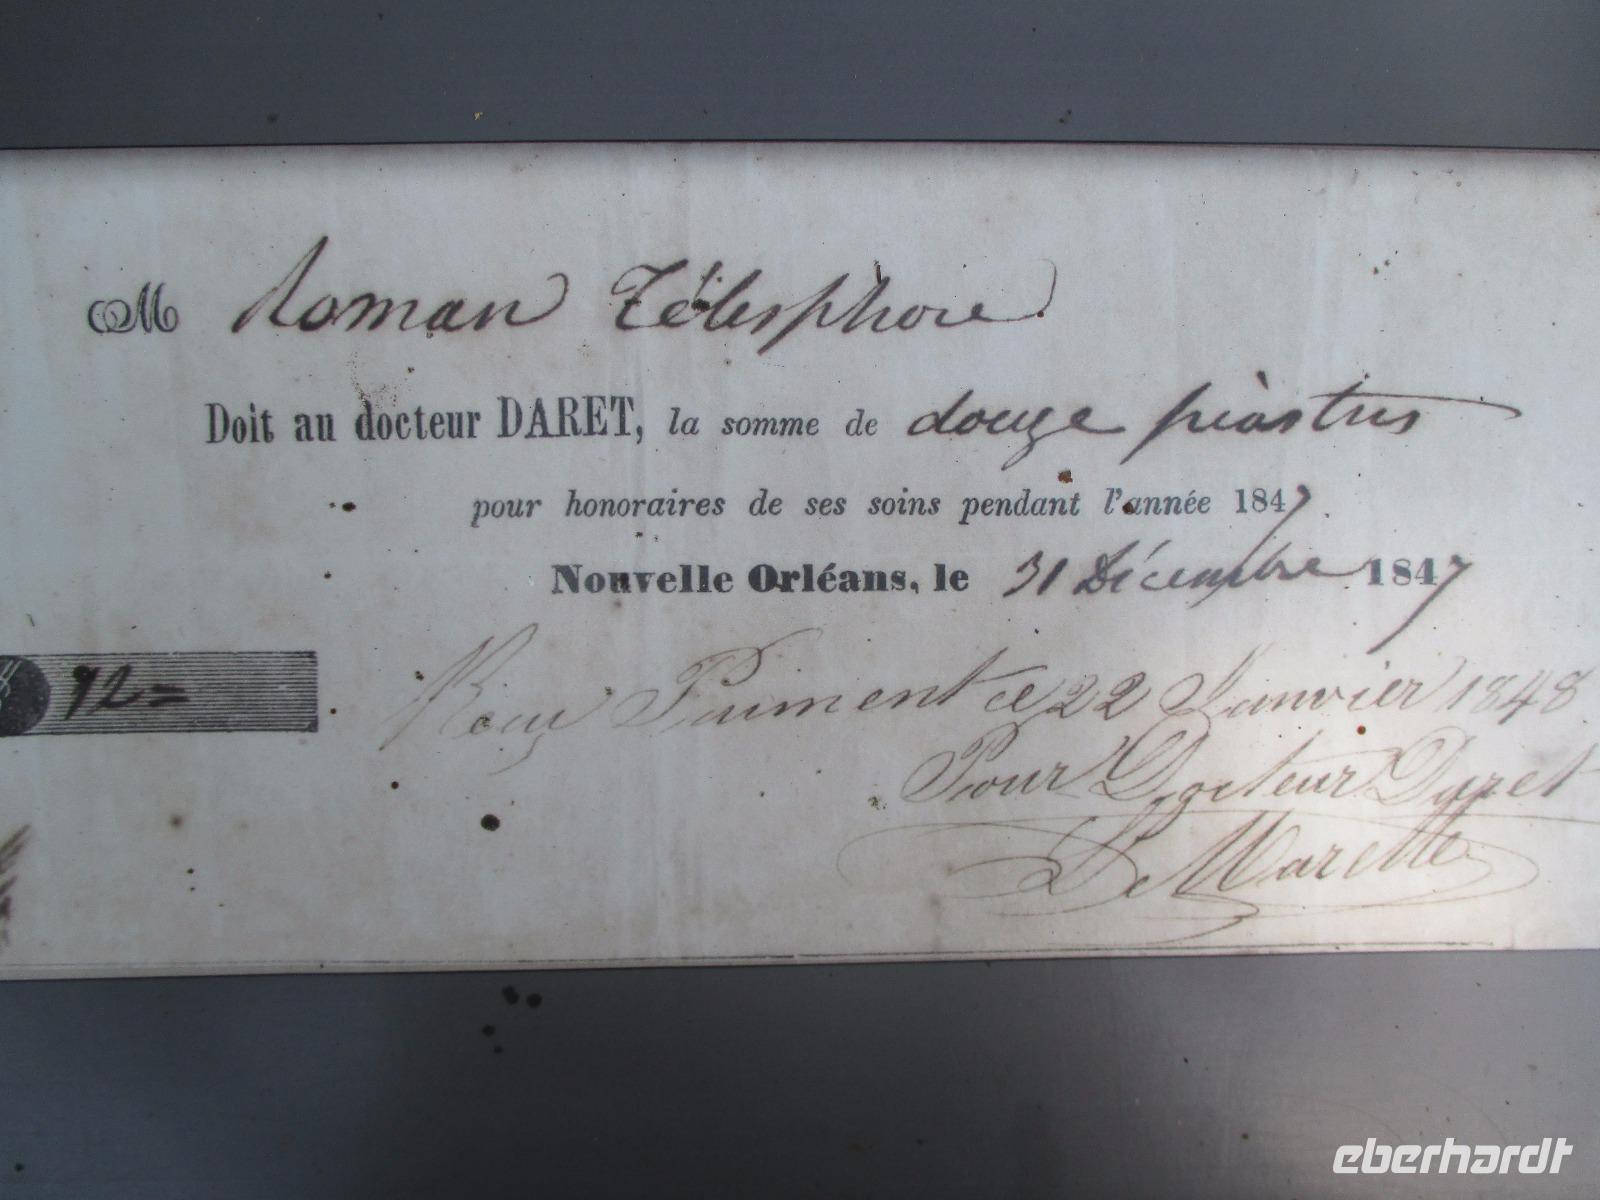 M Roman Télesphore
Doit au docteur DARET, la somme de douze piastres
pour honoraires de ses soins pendant l'année 1847
Nouvelle Orléans, le 31 Décembre 1847
12=
Reçu Paiment ce 22 Janvier 1848
Pour Docteur Daret
De Marette
eberhardt